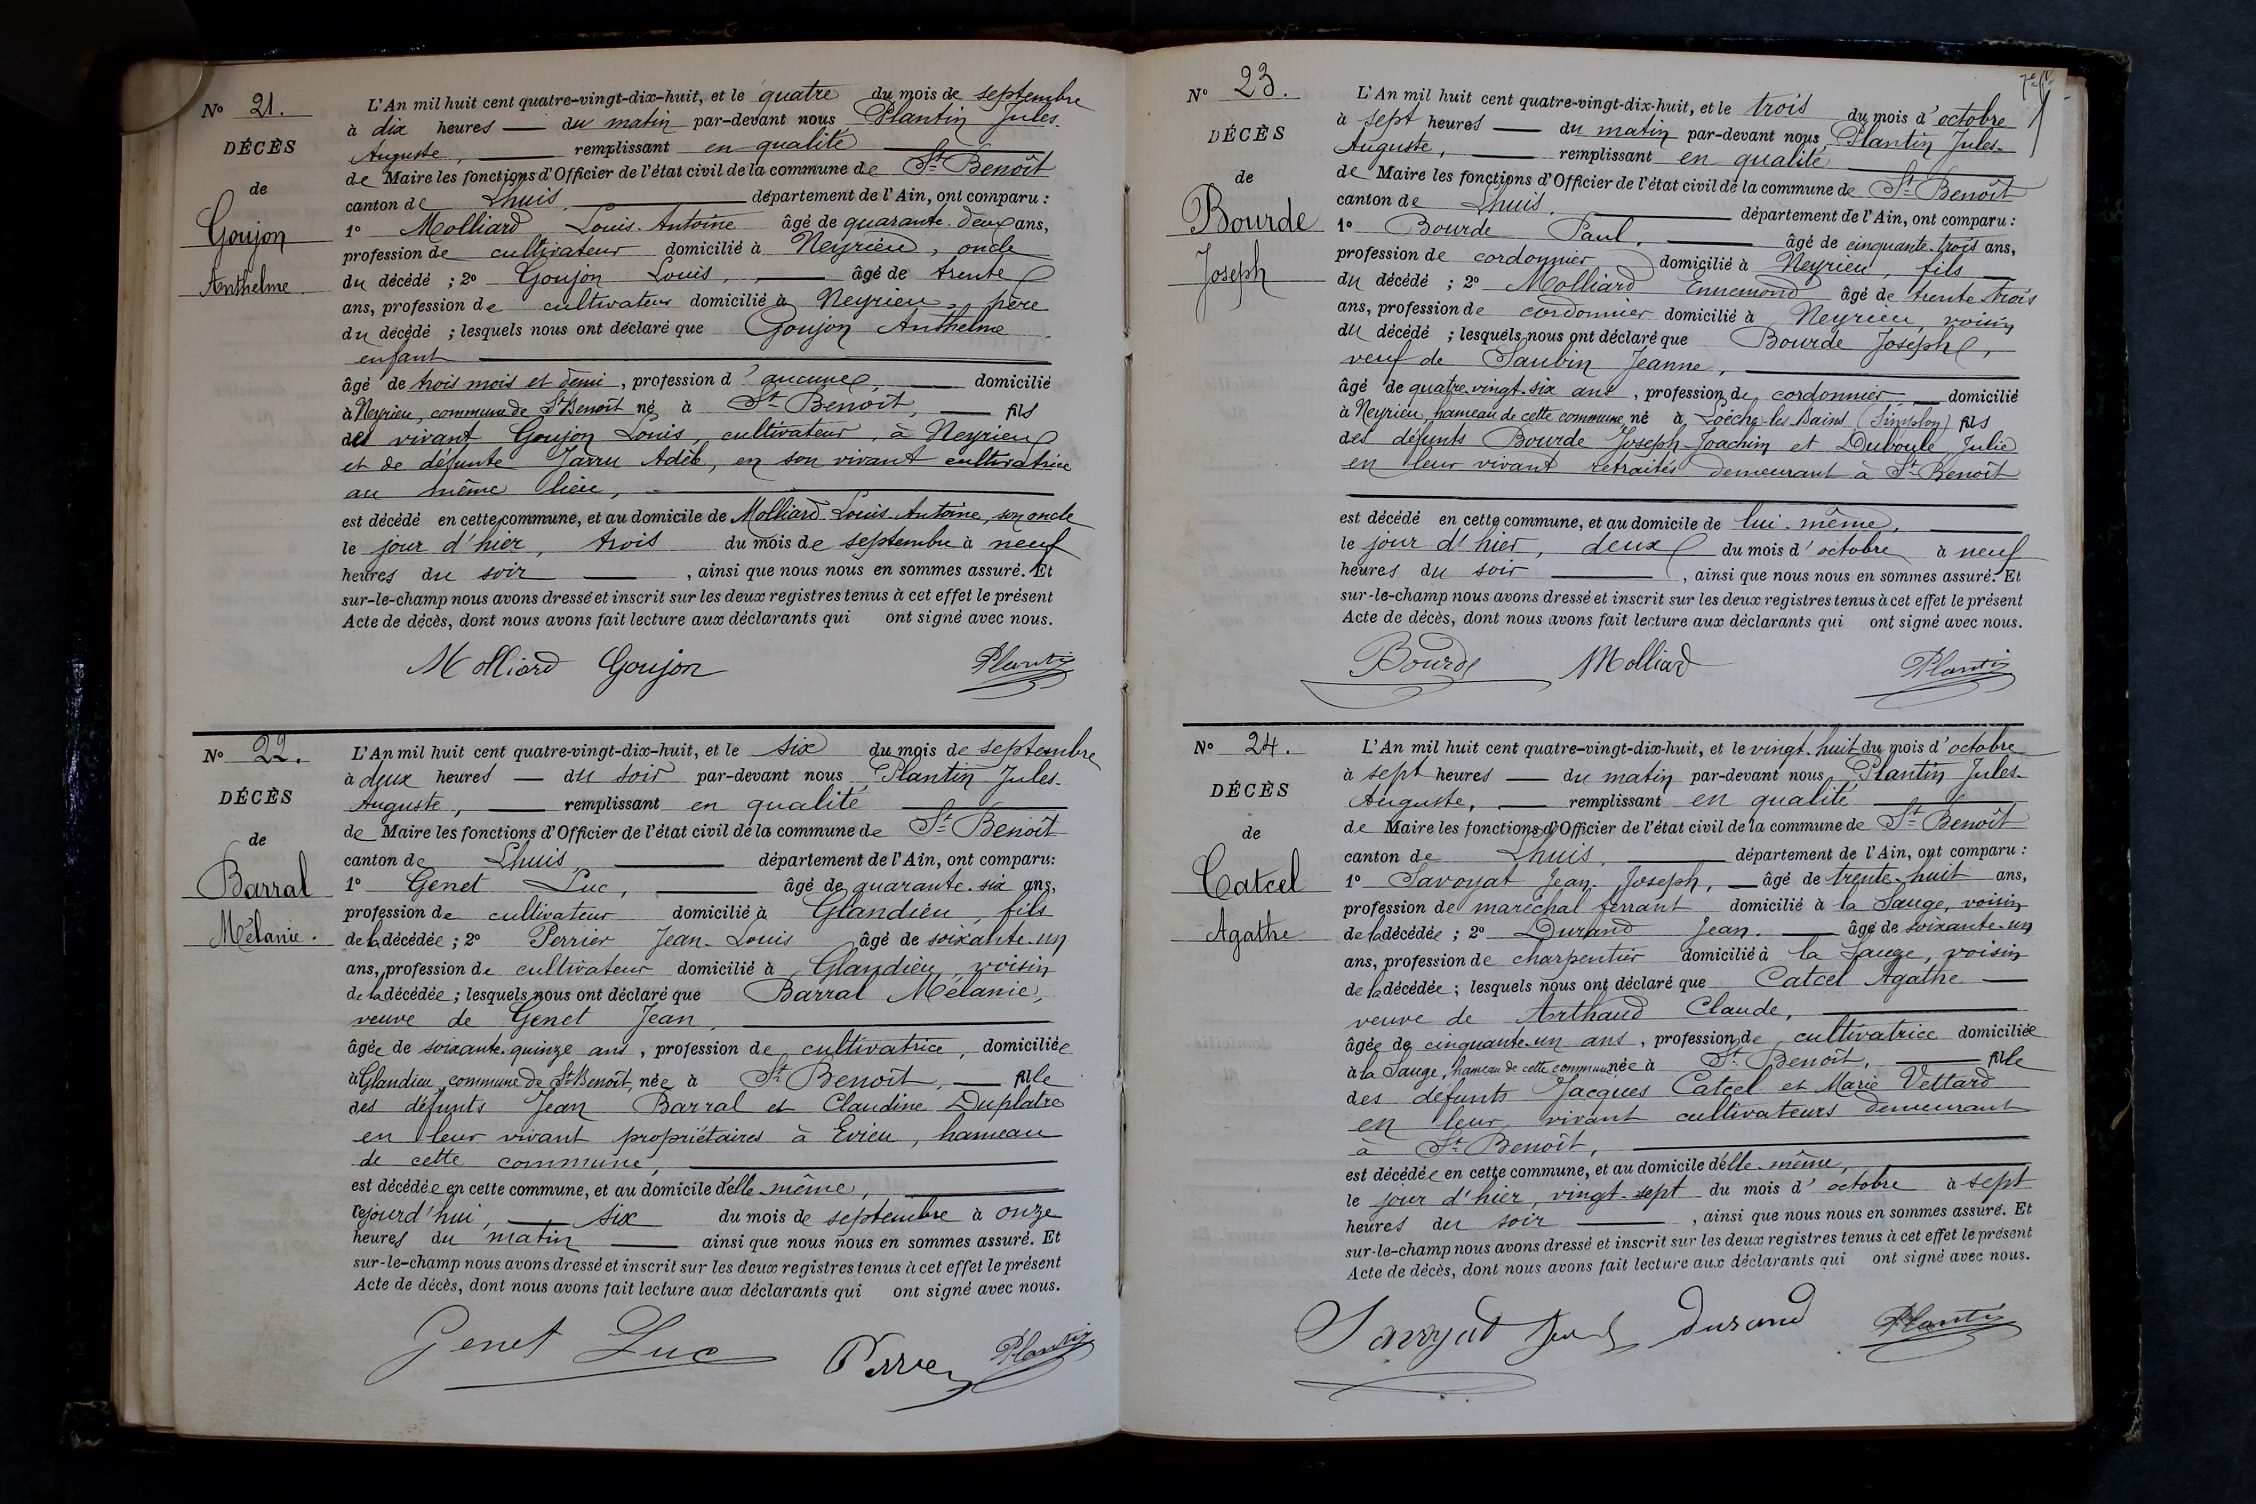 N° 21.
DÉCÈS
de
Goujon
Anthelme
L'An mil huit cent quatre-vingt-dix-huit, et le quatre du mois de septembre
à dix heures — du matin par-devant nous Plantin Jules-
Auguste, — remplissant en qualité
de Maire les fonctions d'Officier de l'état civil de la commune de St Benoît
canton de Lhuis, — département de l'Ain, ont comparu :
1° Molliard Louis-Antoine âgé de quarante-deux ans,
profession de cultivateur domicilié à Neyrieu, oncle
du décédé ; 2° Goujon Louis, — âgé de trente
ans, profession de cultivateur domicilié à Neyrieu, père
du décédé ; lesquels nous ont déclaré que Goujon Anthelme
enfant
âgé de trois mois et demi, profession d'aucune, — domicilié
à Neyrieu, commune de St Benoît né à St Benoît, — fils
de vivant Goujon Louis, cultivateur, à Neyrieu
et de défunte Jarru Adèle, en son vivant cultivatrice
au même lieu,
est décédé en cette commune, et au domicile de Molliard Louis-Antoine, son oncle
le jour d'hier, trois du mois de septembre à neuf
heures du soir — , ainsi que nous nous en sommes assuré. Et
sur-le-champ nous avons dressé et inscrit sur les deux registres tenus à cet effet le présent
Acte de décès, dont nous avons fait lecture aux déclarants qui ont signé avec nous.
Molliard Goujon Plantin
N° 22.
DÉCÈS
de
Barral
Mélanie.
L'An mil huit cent quatre-vingt-dix-huit, et le six du mois de septembre
à deux heures — du soir par-devant nous Plantin Jules-
Auguste, — remplissant en qualité
de Maire les fonctions d'Officier de l'état civil de la commune de St Benoît
canton de Lhuis — département de l'Ain, ont comparu:
1° Genet Luc, — âgé de quarante-six ans,
profession de cultivateur domicilié à Glandieu, fils
de la décédée ; 2° Perrier Jean-Louis âgé de soixante-un
ans, profession de cultivateur domicilié à Glandieu, voisin
de la décédée ; lesquels nous ont déclaré que Barral Mélanie,
veuve de Genet Jean,
âgée de soixante-quinze ans, profession de cultivatrice, domiciliée
à Glandieu, commune de St Benoît, née à St Benoît, — fille
des défunts Jean Barral et Claudine Duplatre
en leur vivant propriétaires à Evieu, hameau
de cette commune,
est décédée en cette commune, et au domicile d'elle-même,
cejourd'hui, — six du mois de septembre à onze
heures du matin — ainsi que nous nous en sommes assuré. Et
sur-le-champ nous avons dressé et inscrit sur les deux registres tenus à cet effet le présent
Acte de décès, dont nous avons fait lecture aux déclarants qui ont signé avec nous.
Genet Luc Perrier Plantin
N° 23.
DÉCÈS
de
Bourde
Joseph
L'An mil huit cent quatre-vingt-dix-huit, et le trois du mois d'octobre
à sept heures — du matin par-devant nous, Plantin Jules-
Auguste, — remplissant en qualité
de Maire les fonctions d'Officier de l'état civil de la commune de St Benoît
canton de Lhuis. — département de l'Ain, ont comparu :
1° Bourde Paul, — âgé de cinquante-trois ans,
profession de cordonnier domicilié à Neyrieu, fils
du décédé ; 2° Molliard Ennemond âgé de trente-trois
ans, profession de cordonnier domicilié à Neyrieu, voisin
du décédé ; lesquels nous ont déclaré que Bourde Joseph,
veuf de Saubin Jeanne,
âgé de quatre-vingt-six ans, profession de cordonnier — domicilié
à Neyrieu, hameau de cette commune né à Loèche-les-Bains (Simplon) fils
des défunts Bourde Joseph-Joachim et Duboule Julie
en leur vivant retraités demeurant à St Benoît
est décédé en cette commune, et au domicile de lui-même,
le jour d'hier, deux du mois d'octobre à neuf
heures du soir — , ainsi que nous nous en sommes assuré. Et
sur-le-champ nous avons dressé et inscrit sur les deux registres tenus à cet effet le présent
Acte de décès, dont nous avons fait lecture aux déclarants qui ont signé avec nous.
Bourde Molliard Plantin
N° 24.
DÉCÈS
de
Catcel
Agathe
L'An mil huit cent quatre-vingt-dix-huit, et le vingt-huit du mois d'octobre
à sept heures — du matin par-devant nous Plantin Jules-
Auguste, — remplissant en qualité
de Maire les fonctions d'Officier de l'état civil de la commune de St Benoît
canton de Lhuis. — département de l'Ain, ont comparu :
1° Savoyat Jean-Joseph, — âgé de trente-huit ans,
profession de maréchal ferrant domicilié à la Sauge, voisin
de la décédée ; 2° Durand Jean. — âgé de soixante-un
ans, profession de charpentier domicilié à la Sauge, voisin
de la décédée ; lesquels nous ont déclaré que Catcel Agathe —
veuve de Arthaud Claude,
âgée de cinquante-un ans, profession de cultivatrice domiciliée
à la Sauge, hameau de cette commune née à St Benoît, — fille
des défunts Jacques Catcel et Marie Vettard
en leur vivant cultivateurs demeurant
à St Benoît,
est décédée en cette commune, et au domicile d'elle-même,
le jour d'hier, vingt-sept du mois d'octobre à sept
heures du soir — , ainsi que nous nous en sommes assuré. Et
sur-le-champ nous avons dressé et inscrit sur les deux registres tenus à cet effet le présent
Acte de décès, dont nous avons fait lecture aux déclarants qui ont signé avec nous.
Savoyat Durand Plantin